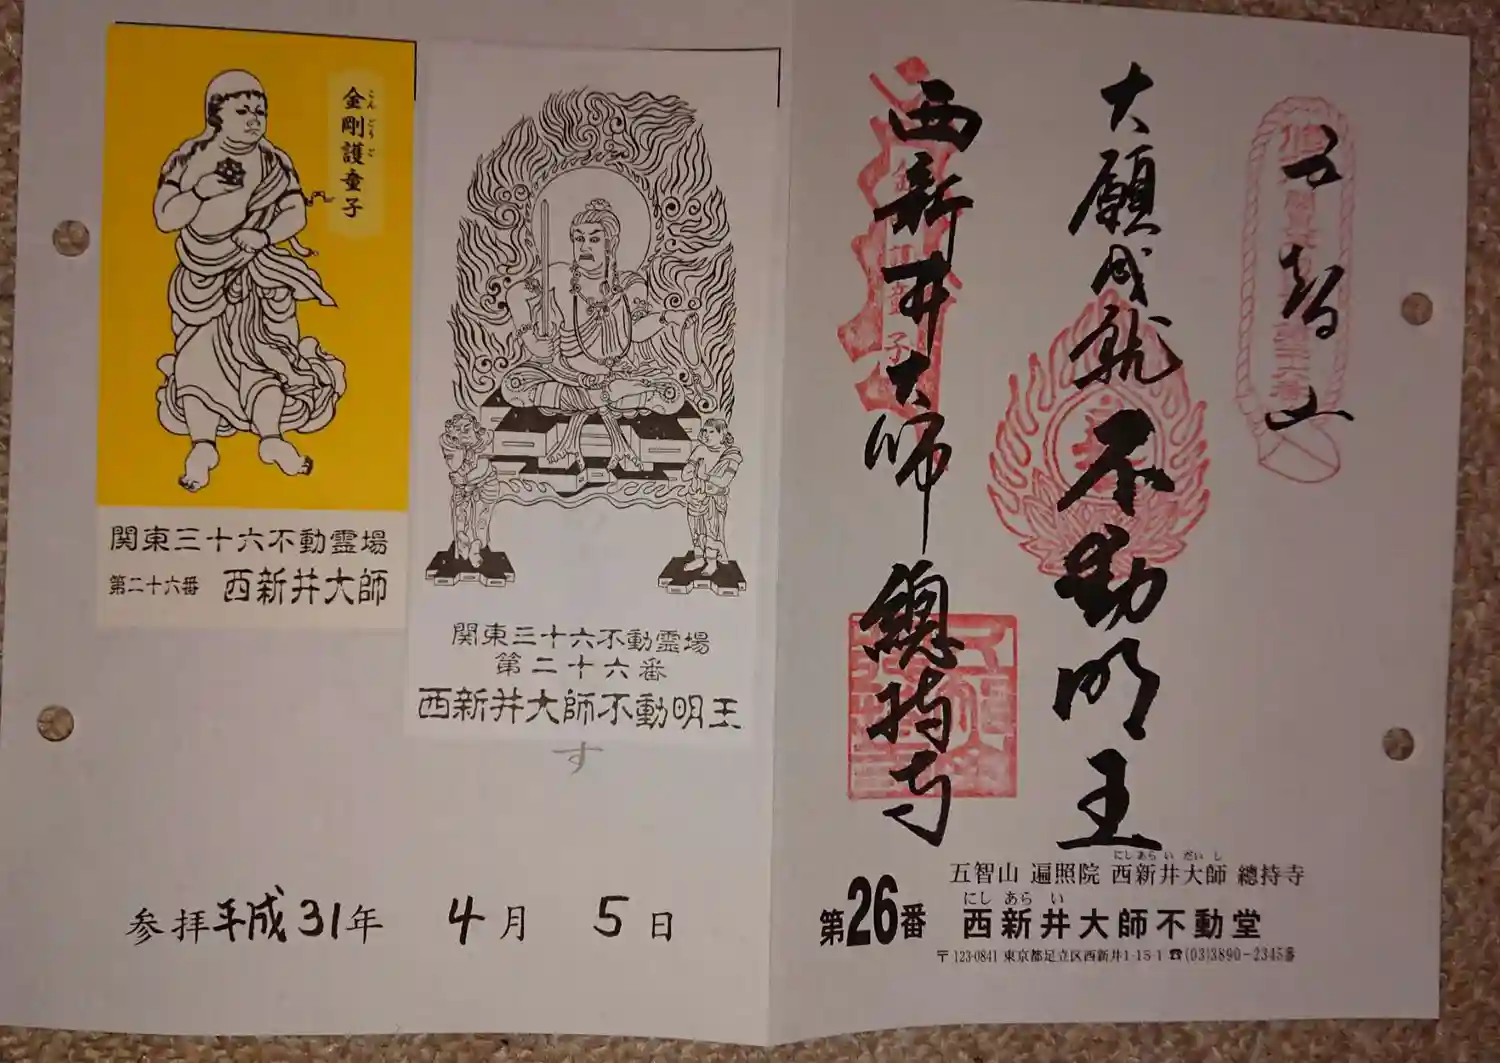 金剛護童子
こんごうご
関東三十六不動霊場
第二十六番 西新井大師
関東三十六不動霊場
第二十六番
西新井大師不動明王
す
参拝平成31年 4月 5日
五智山
大願成就 不動明王
西新井大師 總持寺
五智山 遍照院 西新井大師 總持寺
にしあらいだいし
第26番 西新井大師不動堂
にしあらい
〒123-0841 東京都足立区西新井1-15-1 ☎(03)3890-2345番